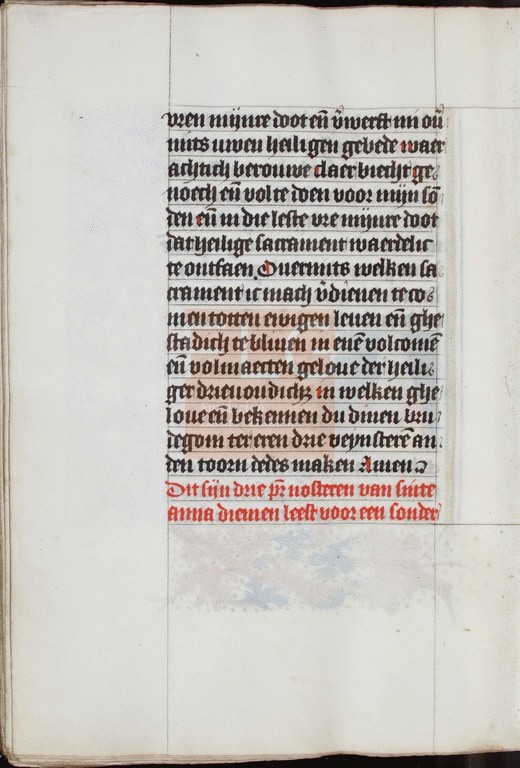 vren mijnre doot en̄ v̄werft mi ou̅
mits uwen heiligen gebede waer
achtich berouwe claer biecht ge
nōech en̄ vol te doen voor mijn sō
den en̄ in die leste vre mijnre doot
dat heilige sacrament waerdelic
te ontfaen Ouermits welken sa
crament ic mach v̄dienen te co
men totten ewigen leuen en̄ ghe
stadich te bliuen in enē volcomē
en̄ volmaecten geloue der heili
ger drieuoudichz in welken ghe
loue en̄ bekennen du dinen bru
degom ter eren drie veynsterē an
den toorn dedes maken Amen
Dit sijn drie pr̄ nosteren van sinte
anna diemen leest voor een sonder